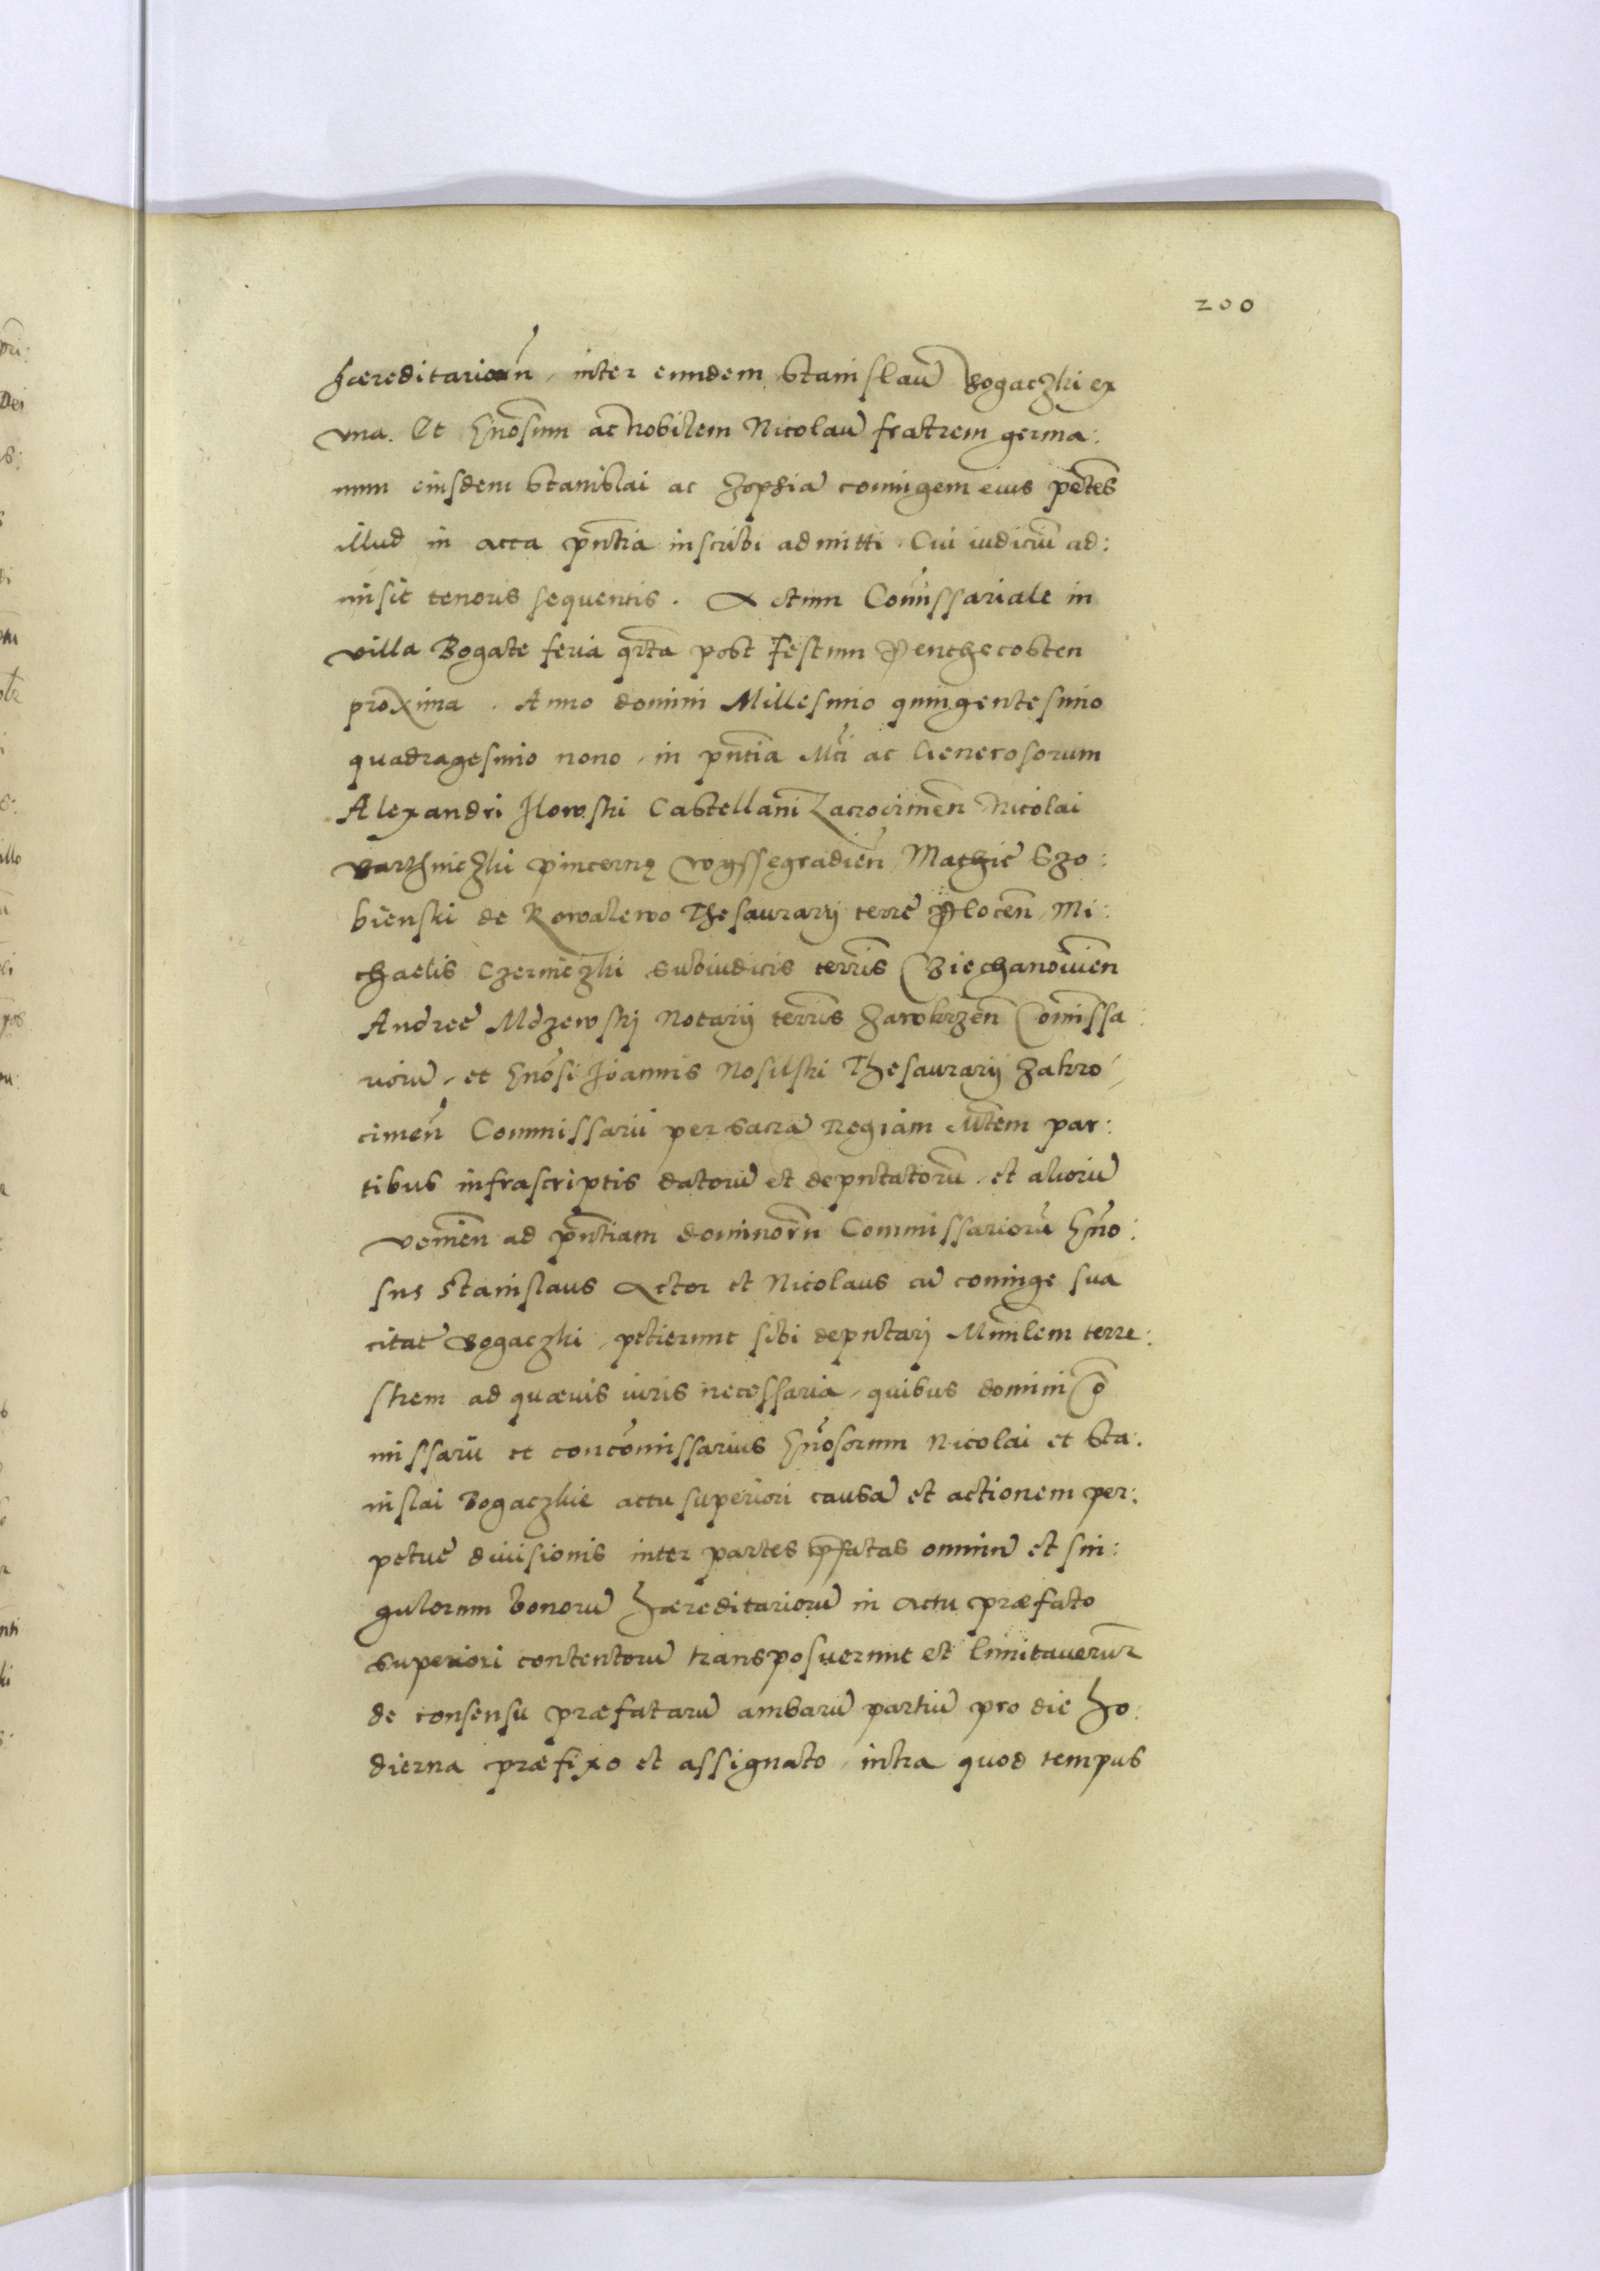 200
hæreditarioru̅, inter eundem Stanislau̅ Bogaczki ex
vna. Et Gn̅osum ac nobilem Nicolau̅ fratrem germa:
num eiusdem Stanislai ac Zophia̅ coniugem eius pete̅s
illud in acta pn̅tia inscribi admitti. Cui iudiciu̅ ad:
misit tenoris sequentis. Actum Com̅issariale in
villa Bogate feria qr̅ta post Festum Penthecosten
proxima. Anno domini Millesimo quingentesimo
quadragesimo nono, in pn̅tia Mci̅ ac Generosorum
Alexandri Jlowski Castellani Zacrocimen̅ Nicolai
pincernę Wyssęgradien̅ Mathie̅ Szo:
bienski de Kowalewo Thesaurarij terre̅ Plocen̅ Mi:
chaelis Czerniczki subiudicis terris̅ Cziechanouien̅
Andree̅ Mdzewskj Notarij terris̅ Zawkrzen̅ Com̅issa:
rioru̅, et Gn̅osi Joannis Nosilski Thesaurarij Zakro:
cimen̅ Commissarii per sacra̅ Regiam Mt̅em par:
tibus infrascriptis datoru̅ et deputatoru̅. et alioru̅
venien̅ ad pn̅tiam dominoru̅ Commissarioru̅ Gn̅o:
sus Stanislaus Actor et Nicolaus cu̅ coniuge sua
citat̅ Bogaczki, petierunt sibi deputarj Minr̅lem terre:
strem ad quævis iuris necessaria, quibus domini Co̅
missarii et concom̅issarius Gn̅osorum Nicolai et Sta:
nislai Bogaczkie actu superiori causa̅ et actionem per:
petue̅ diuisionis inter partes pr̅fatas omniu̅ et sin:
gulorum bonoru̅ hæreditarioru̅ in actu præfato
superiori contentoru̅ transposuerunt et limitaueru̅t
de consensu præfataru̅ ambaru̅ partiu̅ pro die ho:
dierna præfixo et assignato, intra quod tempus